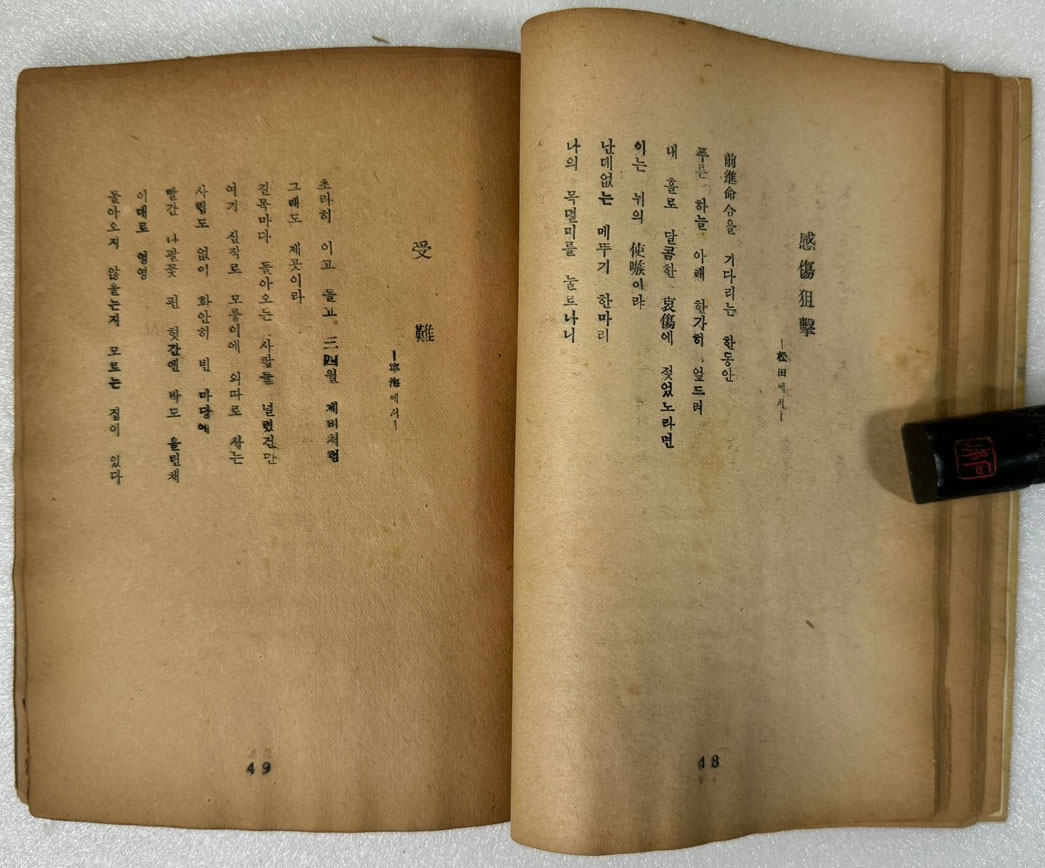 感傷狙擊
ー松田에서ー
前進命令을 기다리는 한동안
푸른 하늘 아래 한가히 엎드려
내 홀로 달콤한 哀傷에 젖었노라면
이는 뉘의 使嗾이랴
난데없는 메뚜기 한마리
나의 목덜미를 눌르나니
48
受難
ー寧海에서ー
초라히 이고 들고 三四월 제비처럼
그래도 제곳이라
길목마다 돌아오든 사람들 널렸건만
여기 신작로 모롱이에 외따로 사는
사립도 없이 화안히 빈 마당에
빨간 나팔꽃 핀 헛간엔 박도 올린채
이대로 영영
돌아오지 않을는지 모르는 집이 있다
49